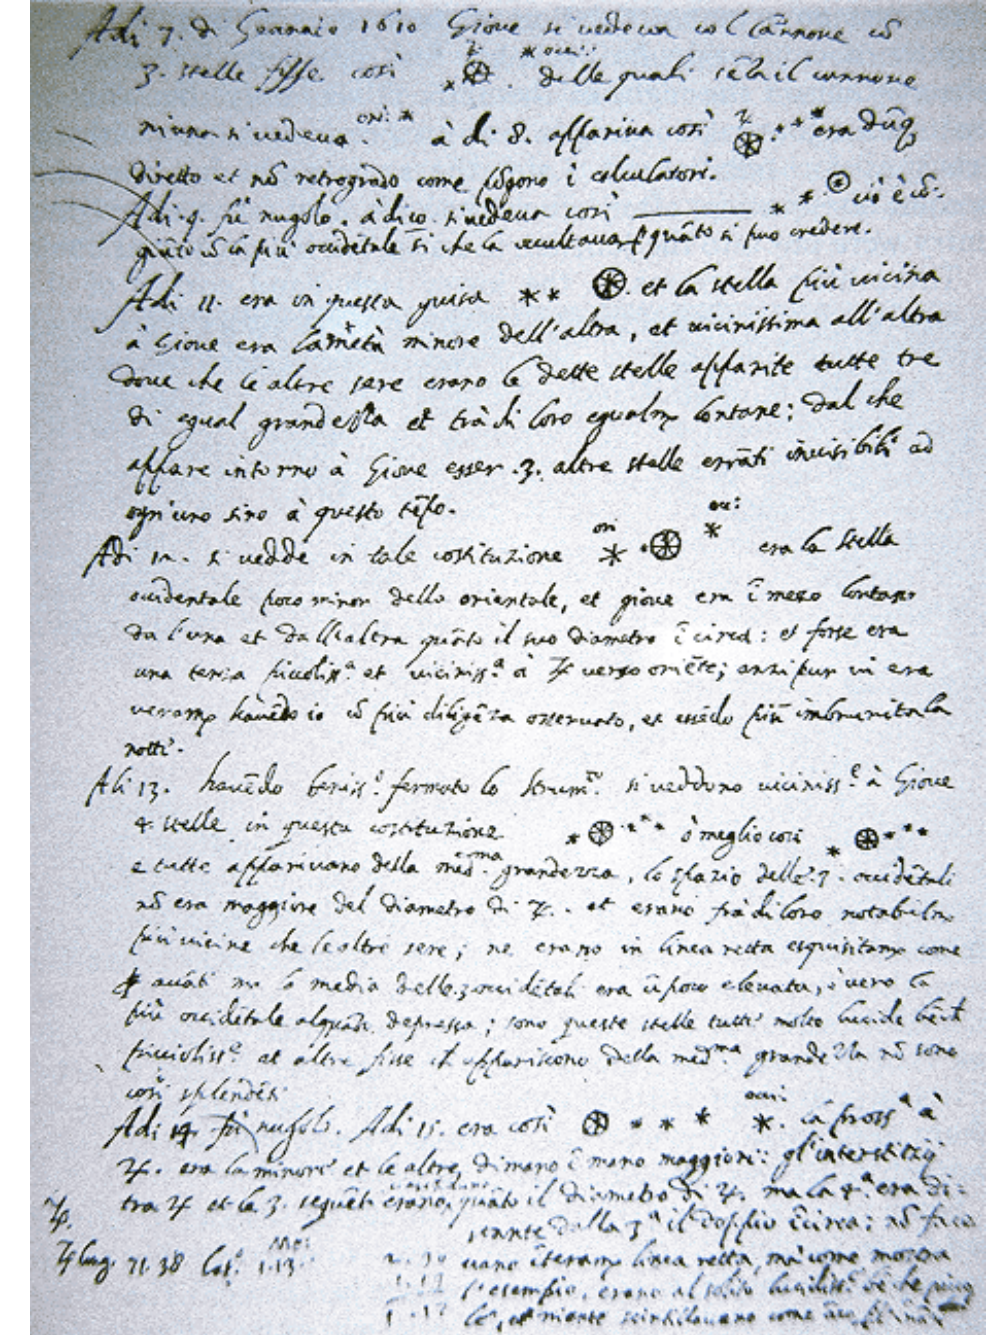 Adi 7. di Gennaio 1610 Giove si vedeva col Cannone cō
3. stelle fisse così ♃ delle quali sēza il cannone
niuna si vedeva. ori: à dì 8. appariva così ♃ era dūq
diretto et nō retrogrado come pōgono i calculatori.
Adi 9. fù nugolo. à dì 10. si vedeva così cioè cō-
giūto cō la più occidētale si che la occultava quāto si può credere.
Adi 11. era in questa guisa et la stella più vicina
à Giove era la metà minore dell'altra, et vicinissima all'altra
dove che le altre sere erano le dette stelle apparite tutte tre
di egual grandezza et trà di loro egualm lontane; dal che
appare intorno à Giove esser .3. altre stelle errāti invisibili ad
ogn'uno sino à questo tēpo.
Adi 12. si vedde in tale costituzione ori occ: era la stella
occidentale poco minor della orientale, et giove era ī mezo lontano
da l'una et dall'altra quāto il suo diametro ī circa: et forse era
una terza piccolissᵃ et vicinissᵃ à ♃ verso oriēte; anzi pur vi era
veramᵉ havēdo io cō più diligēza osservato, et essēdo più imbrunita la
notte.
Adi 13. havēdo benissᵒ fermato lo strumᵗᵒ si veddono vicinissᵉ à Giove
4. stelle in questa costituzione ò meglio così
e tutte apparivano della medᵐᵃ grandezza, lo spazio delle .3. occidētali
nō era maggiore del diametro di ♃. et erano frà di loro notabilm
più vicine che le altre sere; ne erano in linea retta esquisitamᵉ come
avāti ma la media delle 3 occidētali era ū poco elevata, ò vero la
più occidētale alquāto depressa; sono queste stelle tutte molto lucide bēchᵉ
picciolissᵉ et altre fisse chᵉ appariscono della medᵐᵃ grandezza nō sono
così splendēti
Adi 14. fù nugolo. Adi 15. era così occi: la prossᵃ à
♃. era la minore et le altre, di mano ī mano maggiori: gl'interstitij
tra ♃ et le 3. seguēti erano, quāto il diametro di ♃. ma la 4ᵃ era di-
stante dalla 3ᵃ il doppio ī circa; nō face-
♃ long. 71.38 Lat. 1.13 vano īteramᵉ linea retta, ma come mostra
l'esempio, erano al solito lucidissᵉ bē che picco-
le, et niente scintillavano come